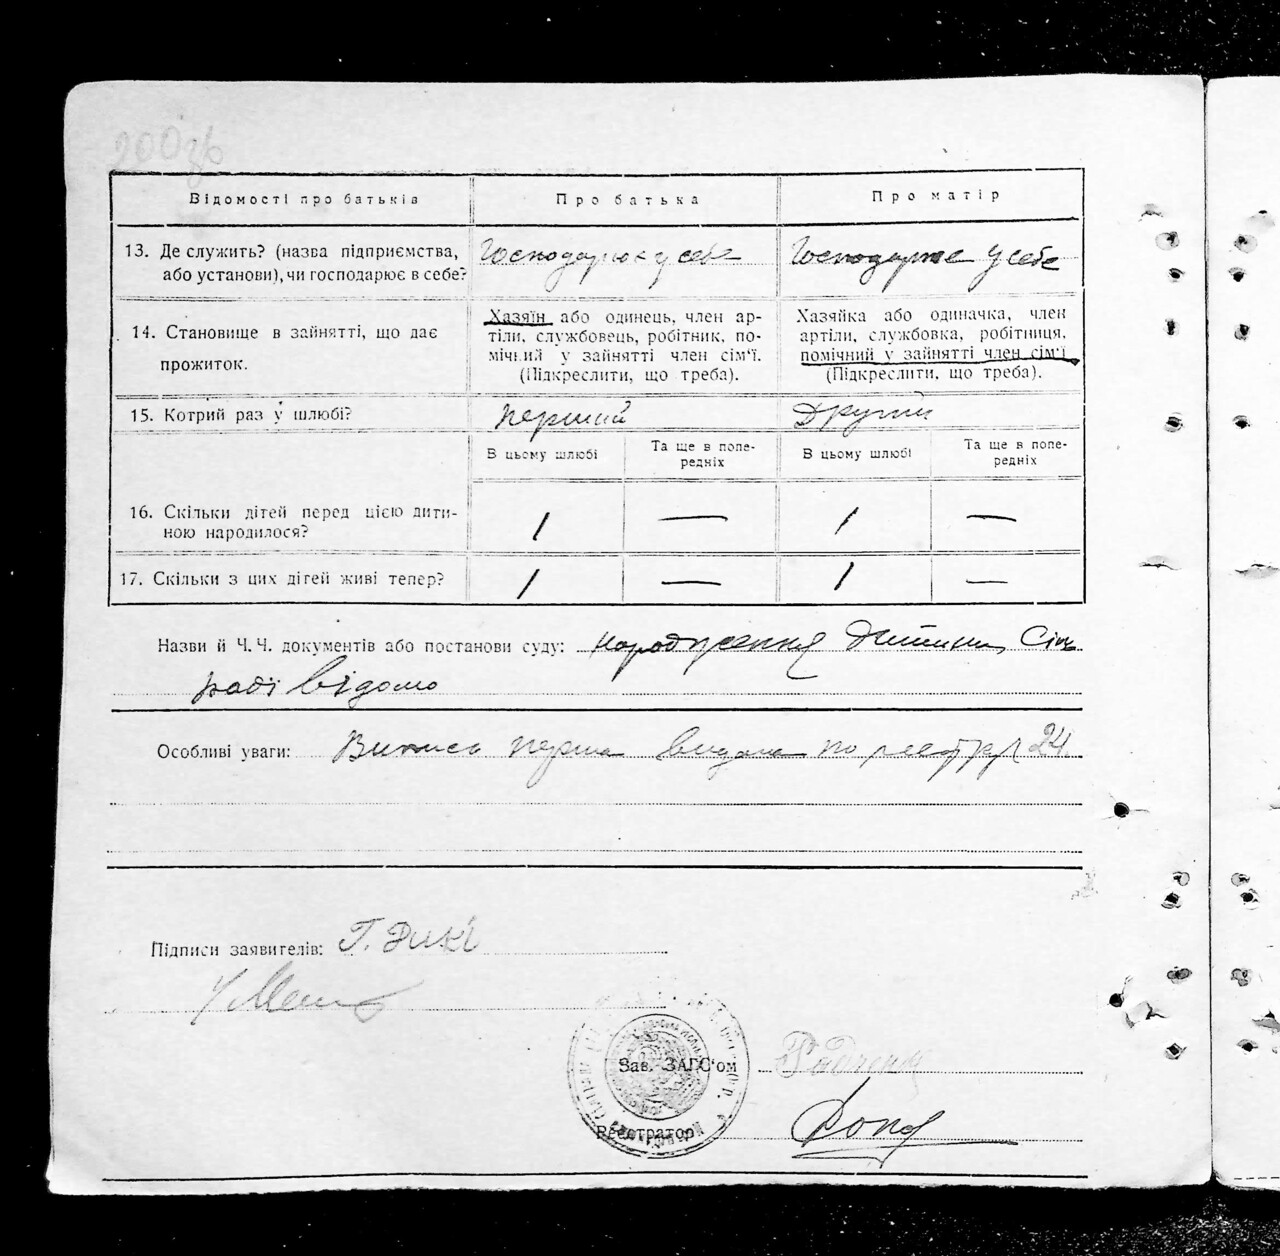 200зв
Відомості про батьків
Про батька
Про матір
13. Де служить? (назва підприємства,
або установи), чи господарює в себе?
Господарює у себе
Господарює у себе
14. Становище в зайнятті, що дає
прожиток.
Хазяїн або одинець, член ар-
тілі, службовець, робітник, по-
мічний у зайнятті член сім'ї.
(Підкреслити, що треба).
Хазяйка або одиначка, член
артілі, службовка, робітниця,
помічний у зайнятті член сім'ї
(Підкреслити, що треба).
15. Котрий раз у шлюбі?
перший
Другий
В цьому шлюбі
Та ще в попе-
редніх
В цьому шлюбі
Та ще в попе-
редніх
16. Скільки дітей перед цією дити-
ною народилося?
1 — 1 —
17. Скільки з цих дітей живі тепер?
1 — 1 —
Назви й Ч. Ч. документів або постанови суду: народження дитини Сіль
раді відомо
Особливі уваги: Випись перша видана по реєстру 24.
Підписи заявителів: Г. Дикі
Зав. ЗАГС'ом
Реєстратор